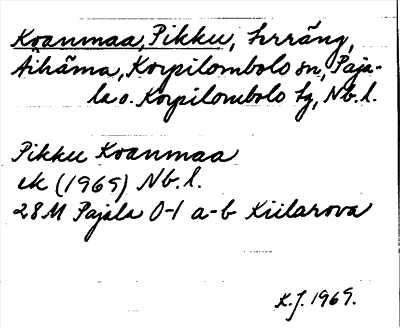 Koanmaa, Pikku, hrräng,
Äihäma, Korpilombolo sn, Paja-
la o. Korpilombolo tg, Nb. l.
Pikku Koanmaa
ek (1969) Nb. l.
28M Pajala 0-1 a-b Kiilarova
K.J. 1969.